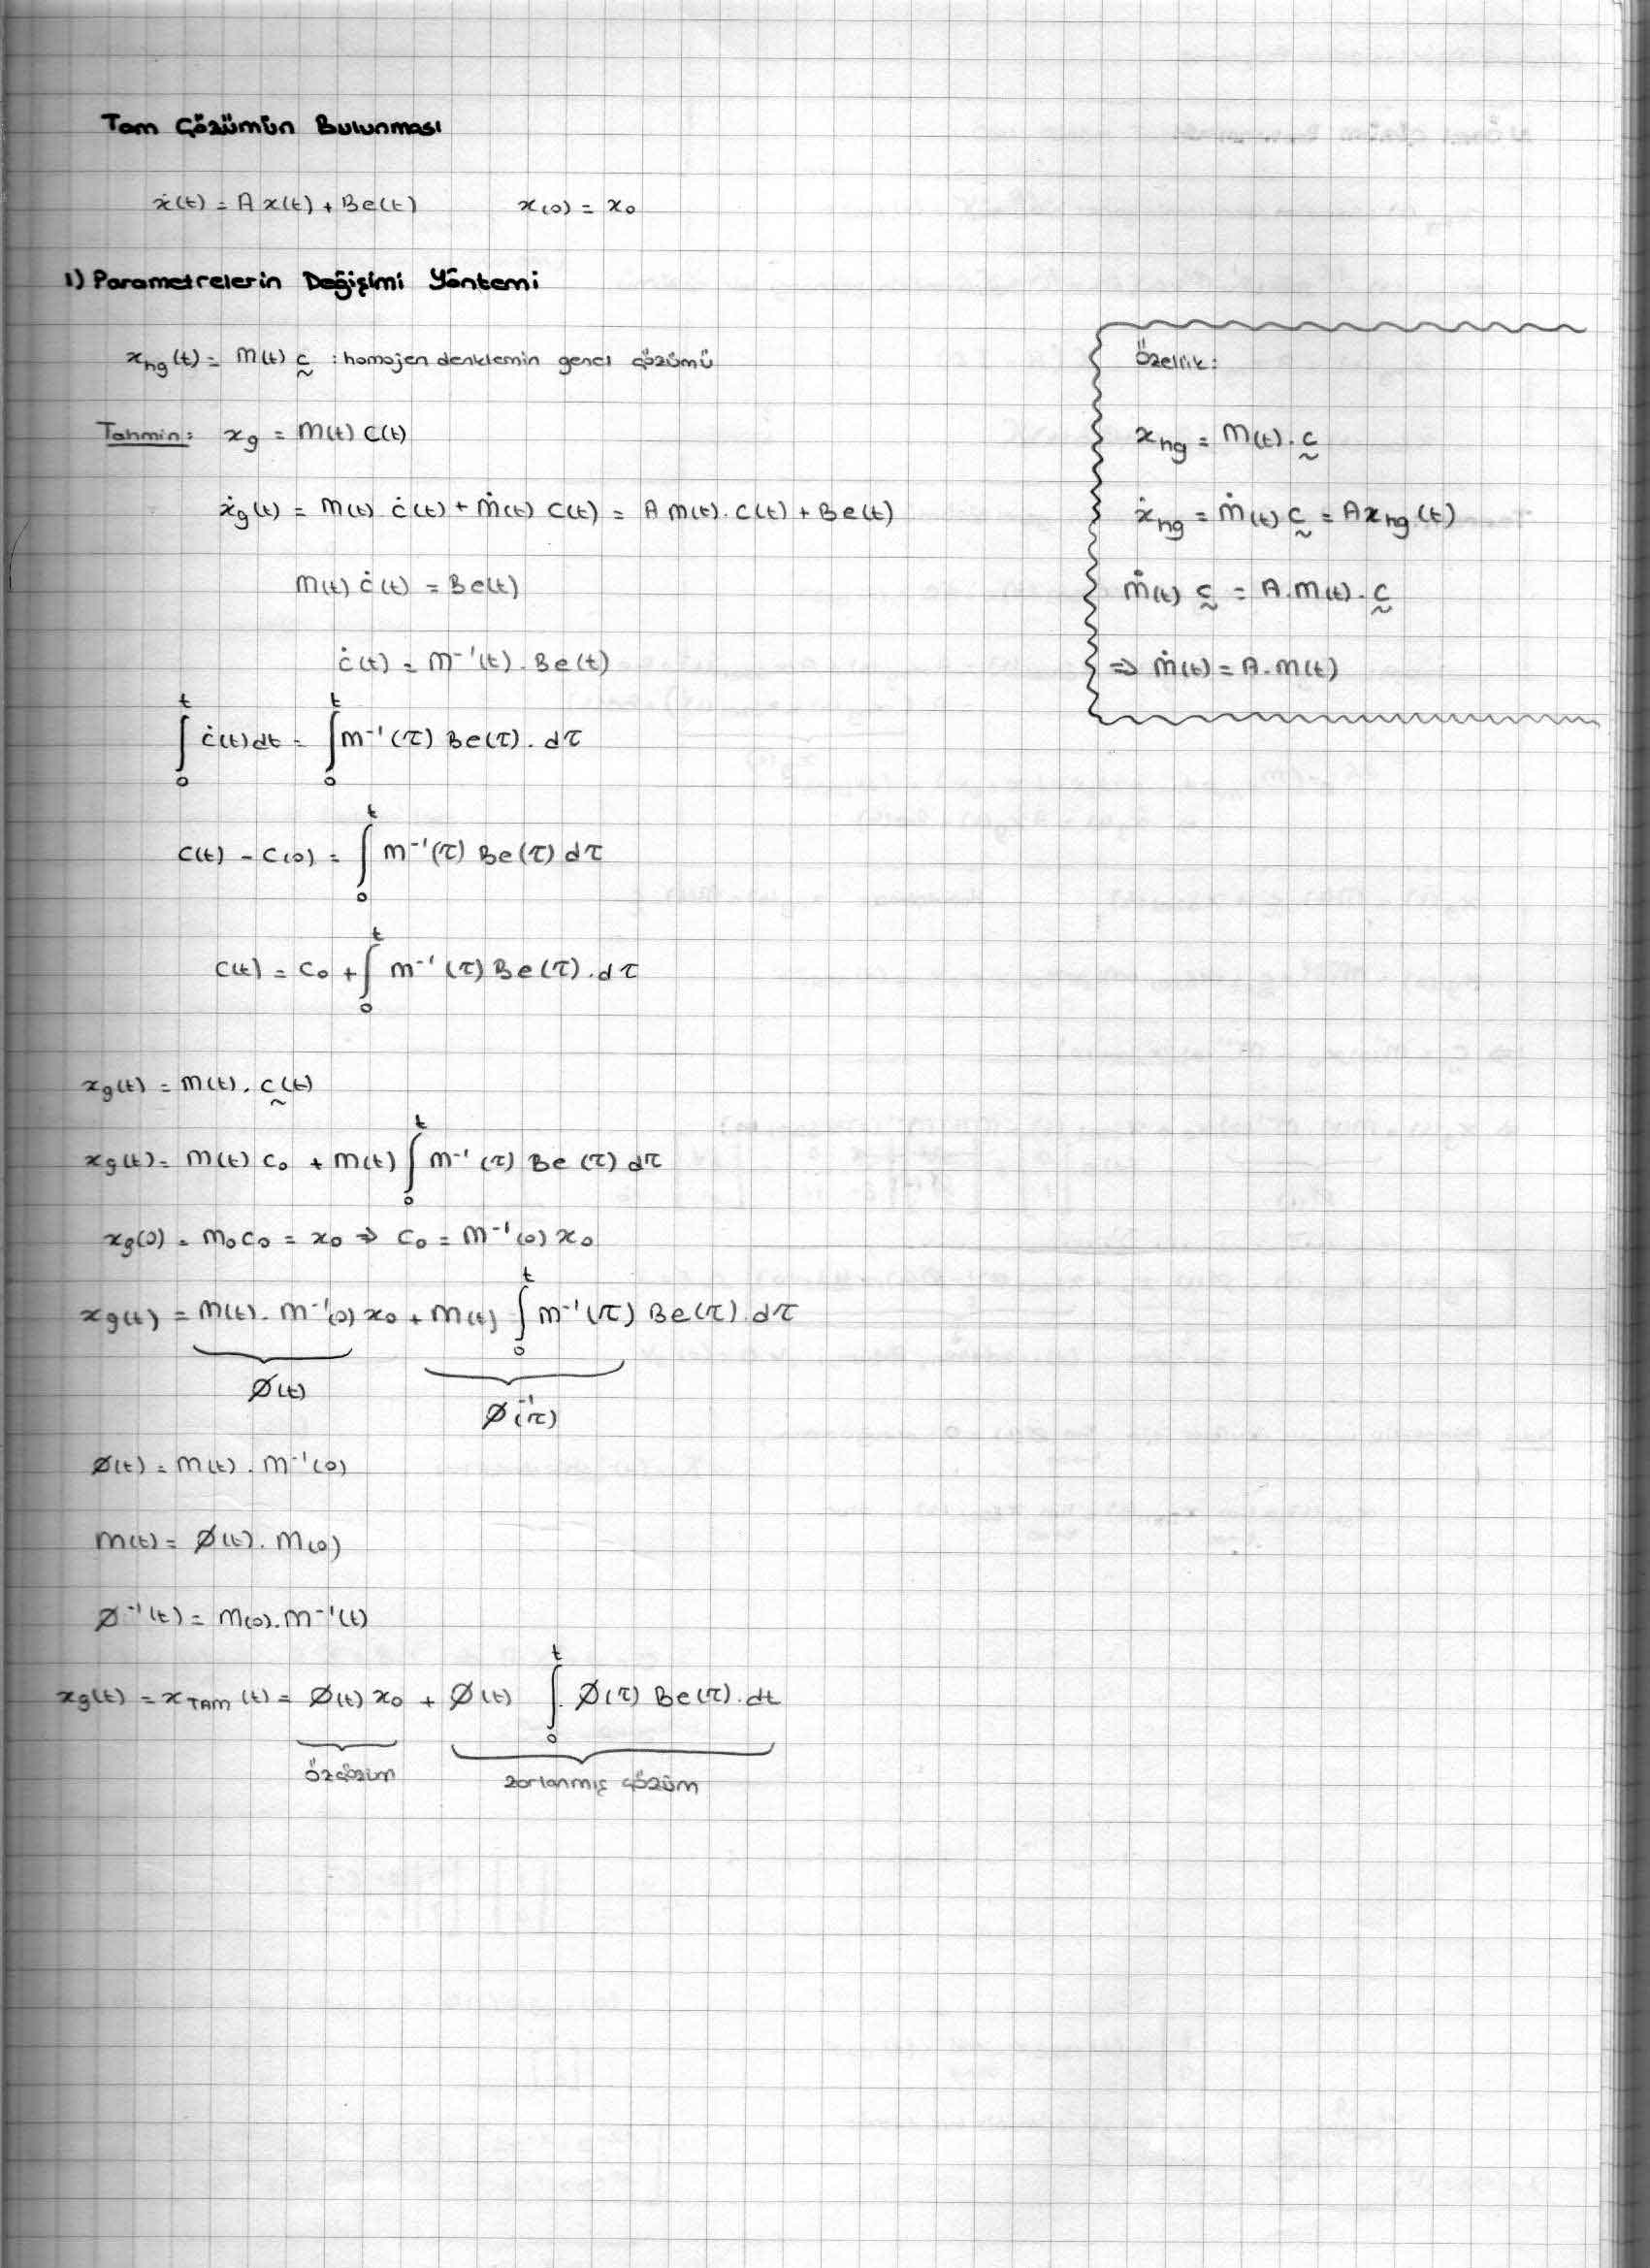 Tam Çözümün Bulunması
ẋ(t) = A x(t) + Be(t)     x(0) = x₀
1) Parametrelerin Değişimi Yöntemi
x_hg(t) = M(t) c̰ : homojen denklemin genel çözümü
Tahmin: x_g = M(t) C(t)
ẋ_g(t) = M(t) Ċ(t) + Ṁ(t) C(t) = A M(t). C(t) + Be(t)
M(t) Ċ(t) = Be(t)
Ċ(t) = M⁻¹(t). Be(t)
∫₀ᵗ Ċ(t)dt = ∫₀ᵗ M⁻¹(τ) Be(τ). dτ
C(t) - C(0) = ∫₀ᵗ M⁻¹(τ) Be(τ) dτ
C(t) = C₀ + ∫₀ᵗ M⁻¹(τ) Be(τ). dτ
x_g(t) = M(t). c̰(t)
x_g(t) = M(t) C₀ + M(t) ∫₀ᵗ M⁻¹(τ) Be(τ) dτ
x_g(0) = M₀C₀ = x₀ ⇒ C₀ = M⁻¹(0) x₀
x_g(t) = M(t). M⁻¹(0) x₀ + M(t) ∫₀ᵗ M⁻¹(τ) Be(τ). dτ
Ø(t)     Ø⁻¹(τ)
Ø(t) = M(t). M⁻¹(0)
M(t) = Ø(t). M(0)
Ø⁻¹(t) = M(0). M⁻¹(t)
x_g(t) = x_TAM(t) = Ø(t) x₀ + Ø(t) ∫₀ᵗ Ø(τ) Be(τ). dt
özçözüm     zorlanmış çözüm
Özellik:
x_hg = M(t). c̰
ẋ_hg = Ṁ(t) c̰ = Ax_hg(t)
Ṁ(t) c̰ = A. M(t). c̰
⇒ Ṁ(t) = A. M(t)